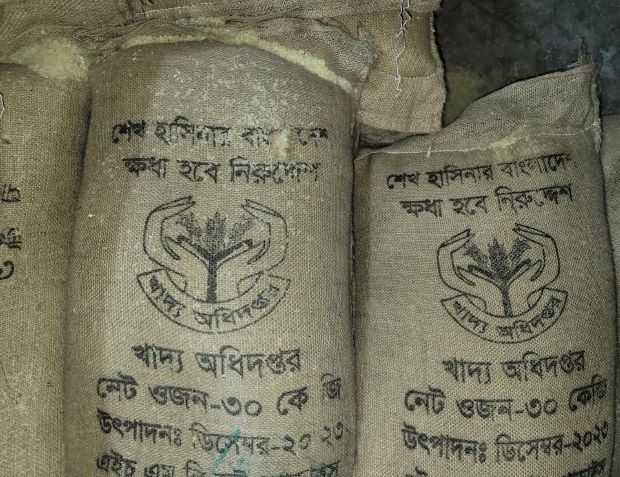 শেখ হাসিনার বাংলাদেশ
ক্ষধা হবে নিরুদ্দেশ
খাদ্য অধিদপ্তর
খাদ্য অধিদপ্তর
নেট ওজন-৩০ কে জি
উৎপাদনঃ ডিসেম্বর-২০২৩
এইচ এম
শেখ হাসিনার বাংলাদেশ
ক্ষধা হবে নিরুদ্দেশ
খাদ্য অধিদপ্তর
খাদ্য অধিদপ্তর
নেট ওজন-৩০ কেজি
উৎপাদনঃ ডিসেম্বর-২০২৩